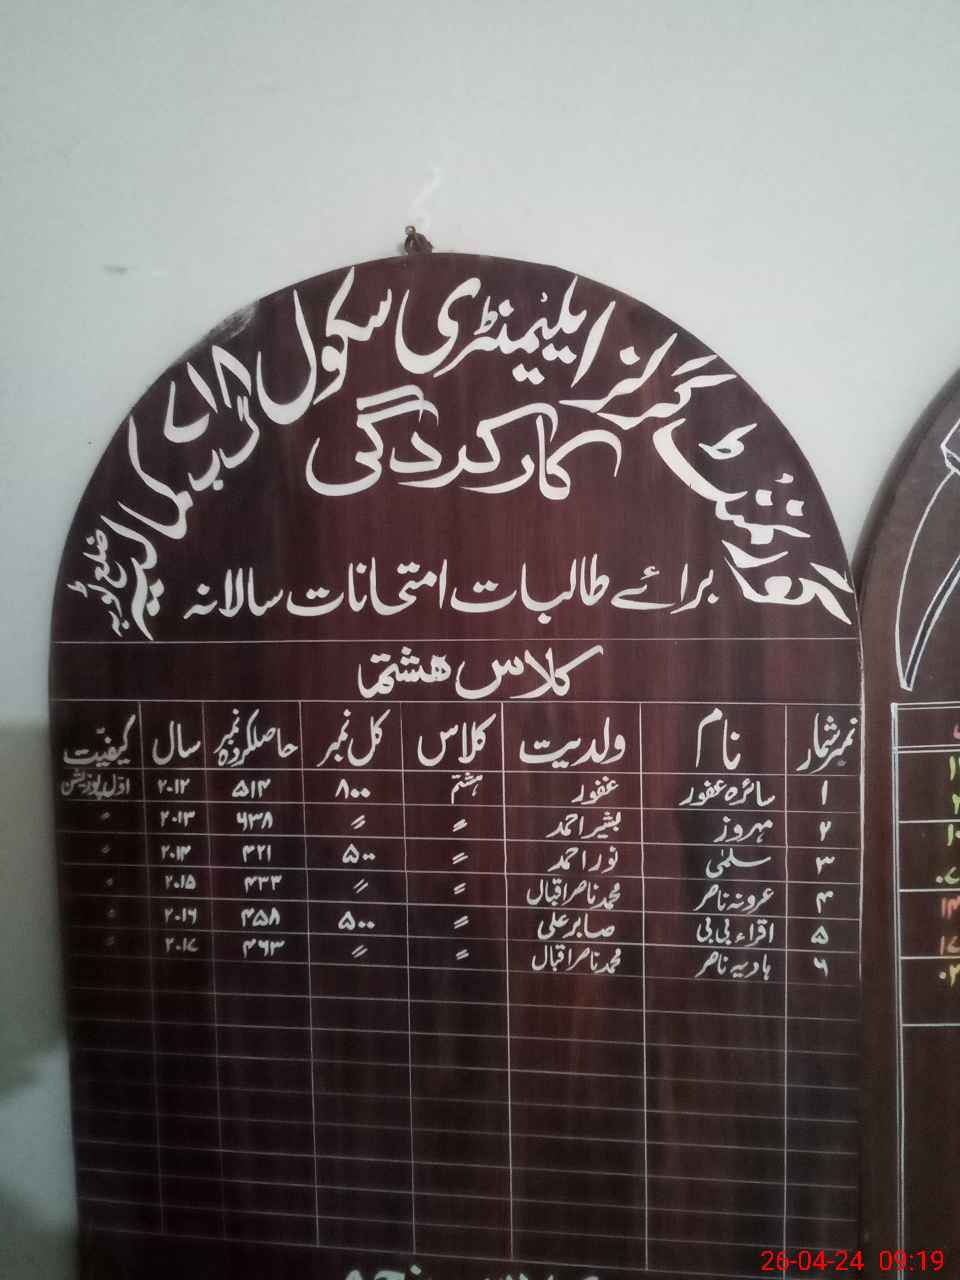 گورنمنٹ گرلز ایلیمنٹری سکول ۸۱ ے ڈب مالیہ ضلع
کارکردگی
برائے طالبات امتحانات سالانہ
کلاس ہشتم
نمبر شمار نام ولدیت کلاس کل نمبر حاصلکردہ نمبر سال کیفیت
۱ سائرہ غفور غفور ہشتم ۸۰۰ ۵۱۴ ۲۰۱۲ اوّل پوزیشن
۲ مہروز بشیر احمد 〃 〃 ۶۳۸ ۲۰۱۳ 〃
۳ سلمٰی نور احمد 〃 ۵۰۰ ۴۲۱ ۲۰۱۴ 〃
۴ عرونہ ناصر محمد ناصر اقبال 〃 〃 ۴۳۳ ۲۰۱۵ 〃
۵ اقراء بی بی صابر علی 〃 ۵۰۰ ۴۵۸ ۲۰۱۶ 〃
۶ ہادیہ ناصر محمد ناصر اقبال 〃 〃 ۴۶۳ ۲۰۱۷ 〃
26-04-24 09:19